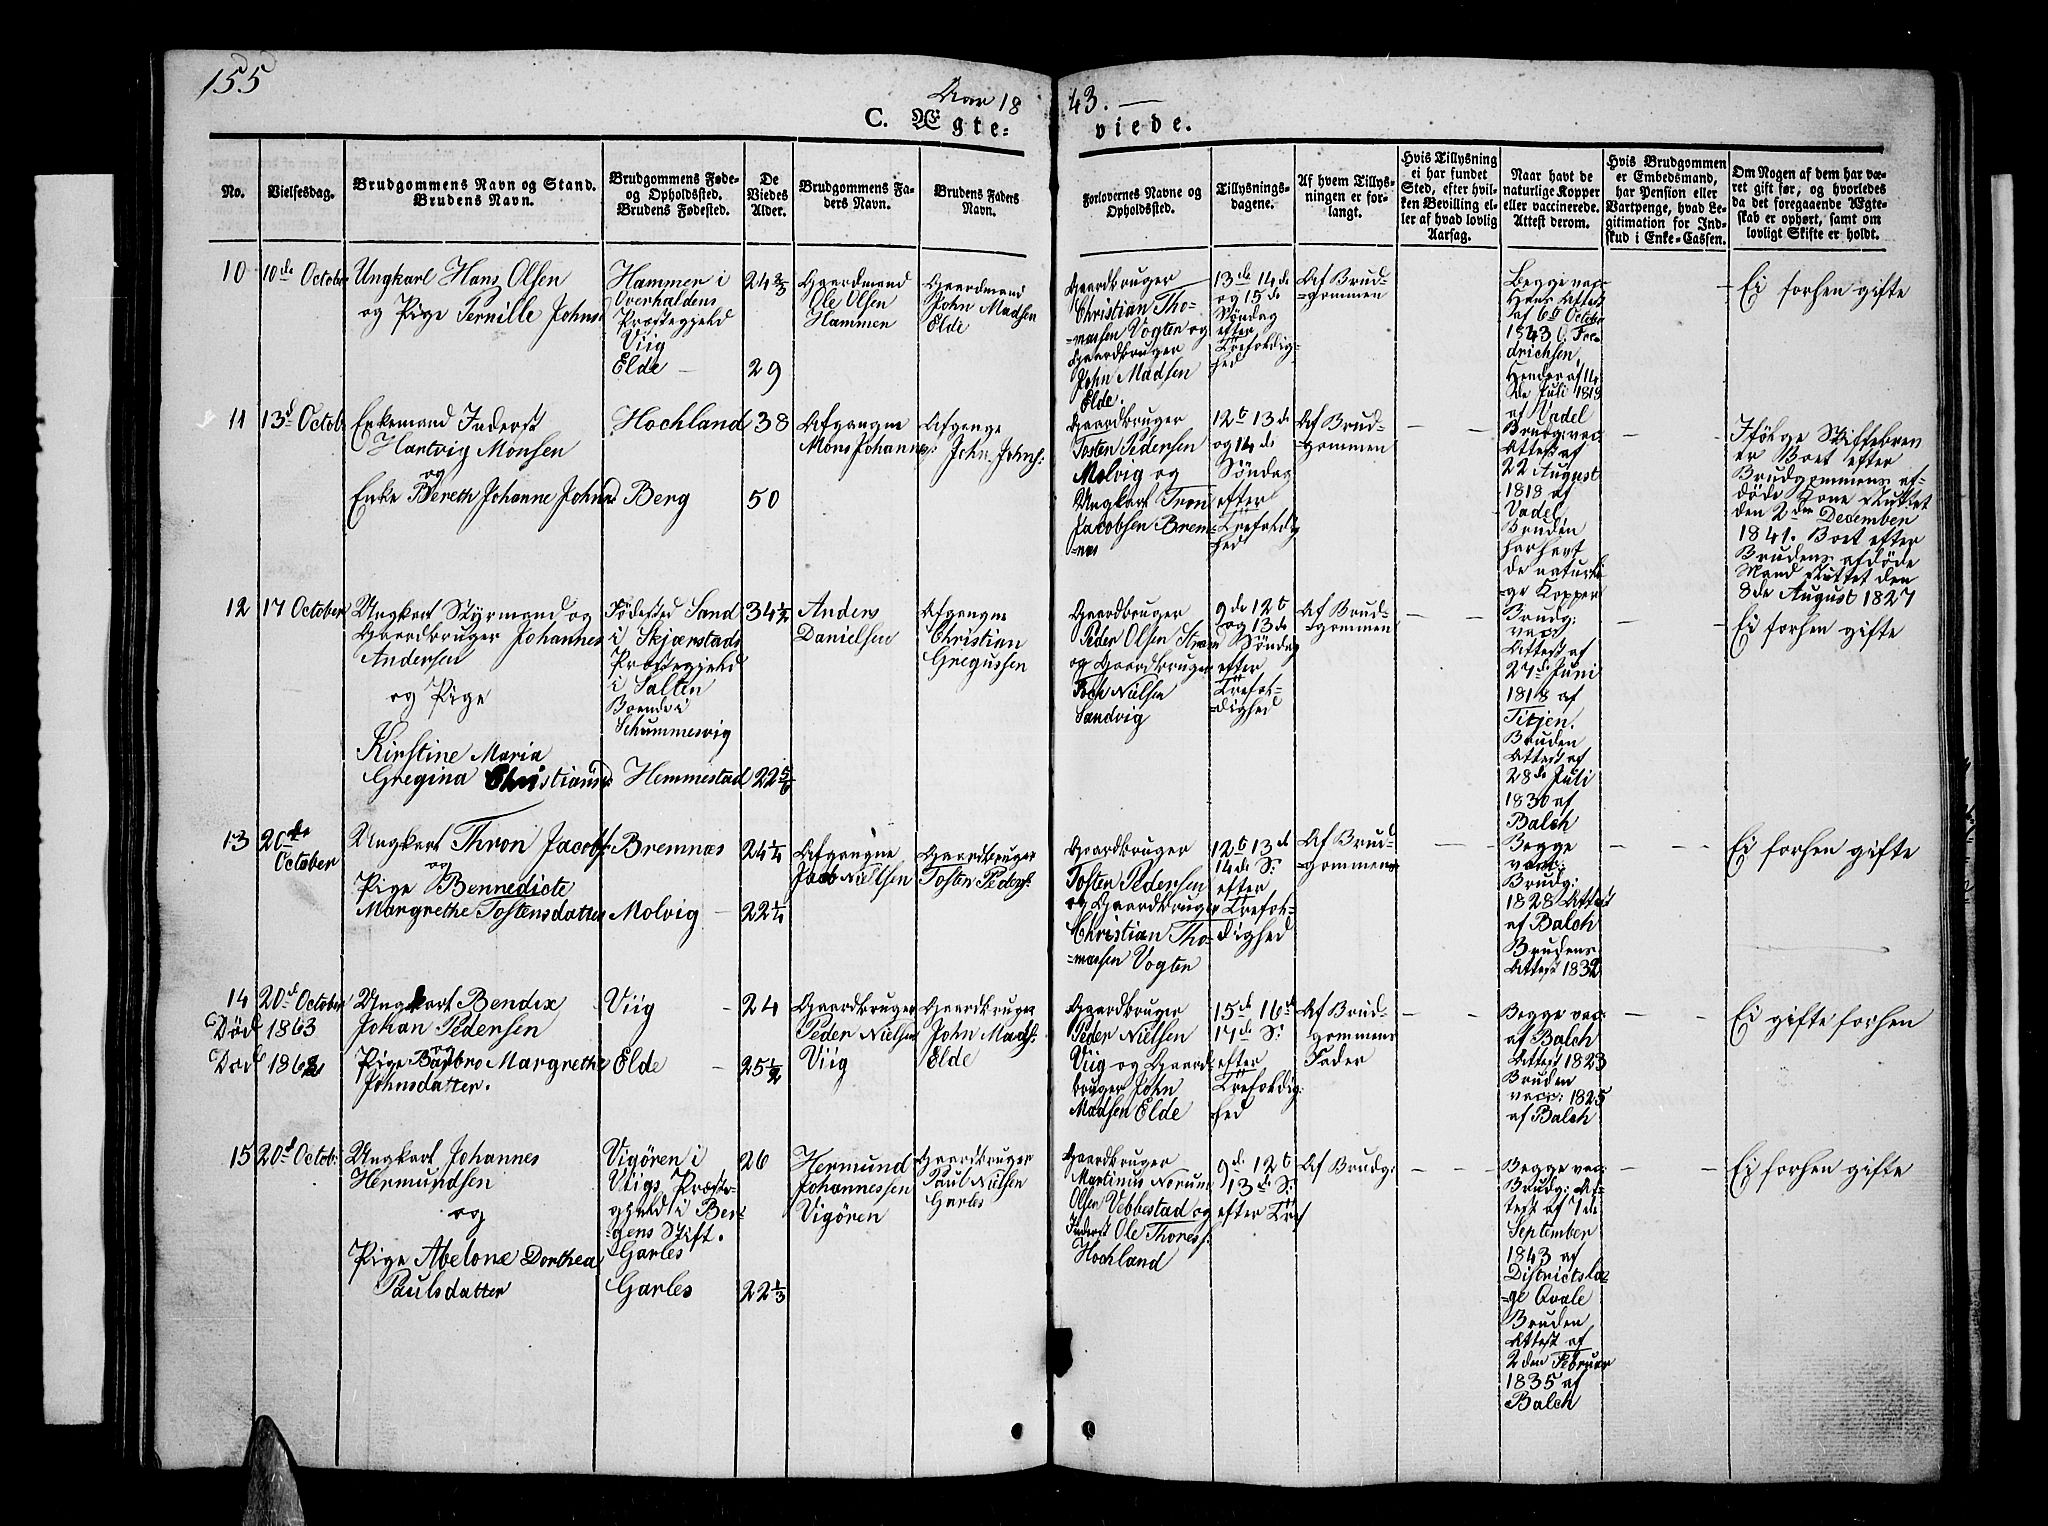 155
Aar 1843. —
C. Ægteviede.
No.
Vielsesdag.
Brudgommens Navn og Stand.
Brudens Navn.
Brudgommens Føde-
og Opholdssted.
Brudens Fødested.
De
Viedes
Alder.
Brudgommens Fa-
ders Navn.
Brudens Faders
Navn.
Forlovernes Navne og
Opholdssted.
Tillysnings-
dagene.
Af hvem Tillys-
ningen er for-
langt.
Hvis Tillysning
ei har fundet
Sted, efter hvil-
ken Bevilling el-
ler af hvad lovlig
Aarsag.
Naar havt de
naturlige Kopper
eller vaccinerede.
Attest derom.
Hvis Brudgommen
er Embedsmand,
har Pension eller
Vartpenge, hvad Le-
gitimation for Ind-
skud i Enke-Cassen.
Om Nogen af dem har væ-
ret gift før, og hvorledes
da det foregaaende Ægte-
skab er ophørt, samt om
lovligt Skifte er holdt.
10
10de October
Ungkarl Hans Olsen
og Pige Pernille Johns:
Hammer i
Overhaldens
Præstegjeld
Viig
Elde —
24 2/3
29
Gaardmand
Ole Olsen
Hammen
Gaardmand
John Madsen
Elde
Gaardbruger
Christian Tho-
-massen Vogten og
Gaardbruger
John Madsen
Elde.
13de 14de
og 15de
Søndag
efter
Trefoldig-
hed
Af Brud-
-gommen
Begge vac:
Hans Attest
af 6te Octobr
1843 C. Fre-
drichsen,
Hendes af 14
de Juli 1819
af Vadel
Ei forhen gifte
11
13d Octob:
Enkemand Inderst
Hartvig Monsen
og
Enke Bereth Johanne Johnsd
Hochland
Berg
38
50
Afgangne
Mons Johannes:
Afgangne
John Johns:
Gaardbruger
Tosten Pedersen
Molvig og
Ungkarl Tron
Jacobsen Brem-
-næs
12te 13de
og 14de
Søndag
efter
Trefoldig
hed
Af Brud-
-gommen
Brudg: vac:
Attest af
22 August
1818 af
Vadel
Bruden
har havt
de naturli
-ge Kopper
Ifølge Skiftebrev
er Boet efter
Brudgommens af-
døde Kone sluttet
den 2den December
1841. Boet efter
Brudens afdøde
Mand sluttet den
8de August 1827
12
17 October
Ungkarl Styrmand og
Gaardbruger Johannes
Andersen
og Pige
Kirstine Maria
Gregina Christiansd
Fødested Sand
i Skjærstads
Præstegjeld
i Salten
Boende i
Schummesvig
Hemmestad
34 1/2
22 5/6
Anders
Danielsen
Afgangne
Christian
Gregussen
Gaardbruger
Peder Olsen Strand
og Gaardbruger
Nielsen
Sandvig
9de 12te
og 13de
Søndag
efter
Trefol-
-dighed
Af Brud-
-gommen
Brudg:
vac:
Attest af
27de Juni
1818 af
Titjen.
Bruden
Attest af
28de Juli
1830 af
Balch
Ei forhen gifte
13
20de
October
Ungkarl Thron Jacobs:
og
Pige Bennedicte
Margrethe Tostensdatter
Bremnæs
Molvig —
24 1/4
22 1/4
Afgangne
Jacob Nielsen
Gaardbruger
Tosten Peders:
Gaardbruger
Tosten Pedersen
og Gaardbruger
Christian Tho-
-massen Vogten
12te 13de
14de S:
efter
Trefol-
dighed
Af Brud-
-gommen
Begge
vacc:
Brudg:
1828 Attest
af Balch
Brudens
Attest 1832
Ei forhen gifte
14
20d October
Død 1863
Død 1862
Ungkarl Bendix
Johan Pedersen
og
Pige Barbro Margrethe
Johnsdatter.
Viig
Elde
24
25 1/2
Gaardbruger
Peder Nielsen
Viig
Gaardbruger
John Mads:
Elde
Gaardbruger
Peder Nielsen
Viig og Gaard-
bruger John
Madsen Elde
15de 16de
17de S:
efter
Trefoldig-
hed
Af Brud-
gommens
Fader
Begge vac:
af Balch
Attest 1823
Bruden
vacc: 1825
af Balch
Ei gifte forhen
15
20d Octob:
Ungkarl Johannes
Hermundsen
og
Pige Abelone Dorthea
Paulsdatter
Vigören i
Viigs Præste-
gjeld i Ber-
-gens Stift.
Garles
Garles
26
22 1/3
Hermund
Johannessen
Vigören
Gaardbruger
Paul Nielsen
Garles
Gaardbruger
Martinus Norum
Olsen Vebbestad og
Inderst Ole Thoress:
Hochland
9de 12te
13de S:
efter Tref
Af Brudg:
Begge vac:
Brudg: At-
test af 7de
September
1843 af
Districtslæ-
-ge Qvale
Bruden
Attest af
2den Februar
1835 af
Balch
Ei forhen gifte